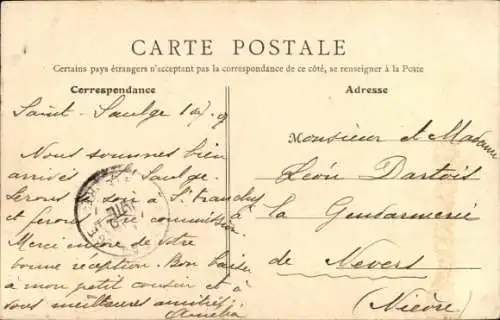 CARTE POSTALE
Certains pays étrangers n'acceptant pas la correspondance de ce côté, se renseigner à la Poste
Correspondance
Saint-Saulge
Nous sommes bien
arrivés Saulge.
Serons ce soir à St Franchy
et ferons votre commission.
Merci encore de votre
bonne réception. Bon baiser
à mon petit cousin et à
vous meilleures amitiés.
Adresse
Monsieur et Madame
Léon Dartois
à la Gendarmerie
de Nevers
(Nièvre)